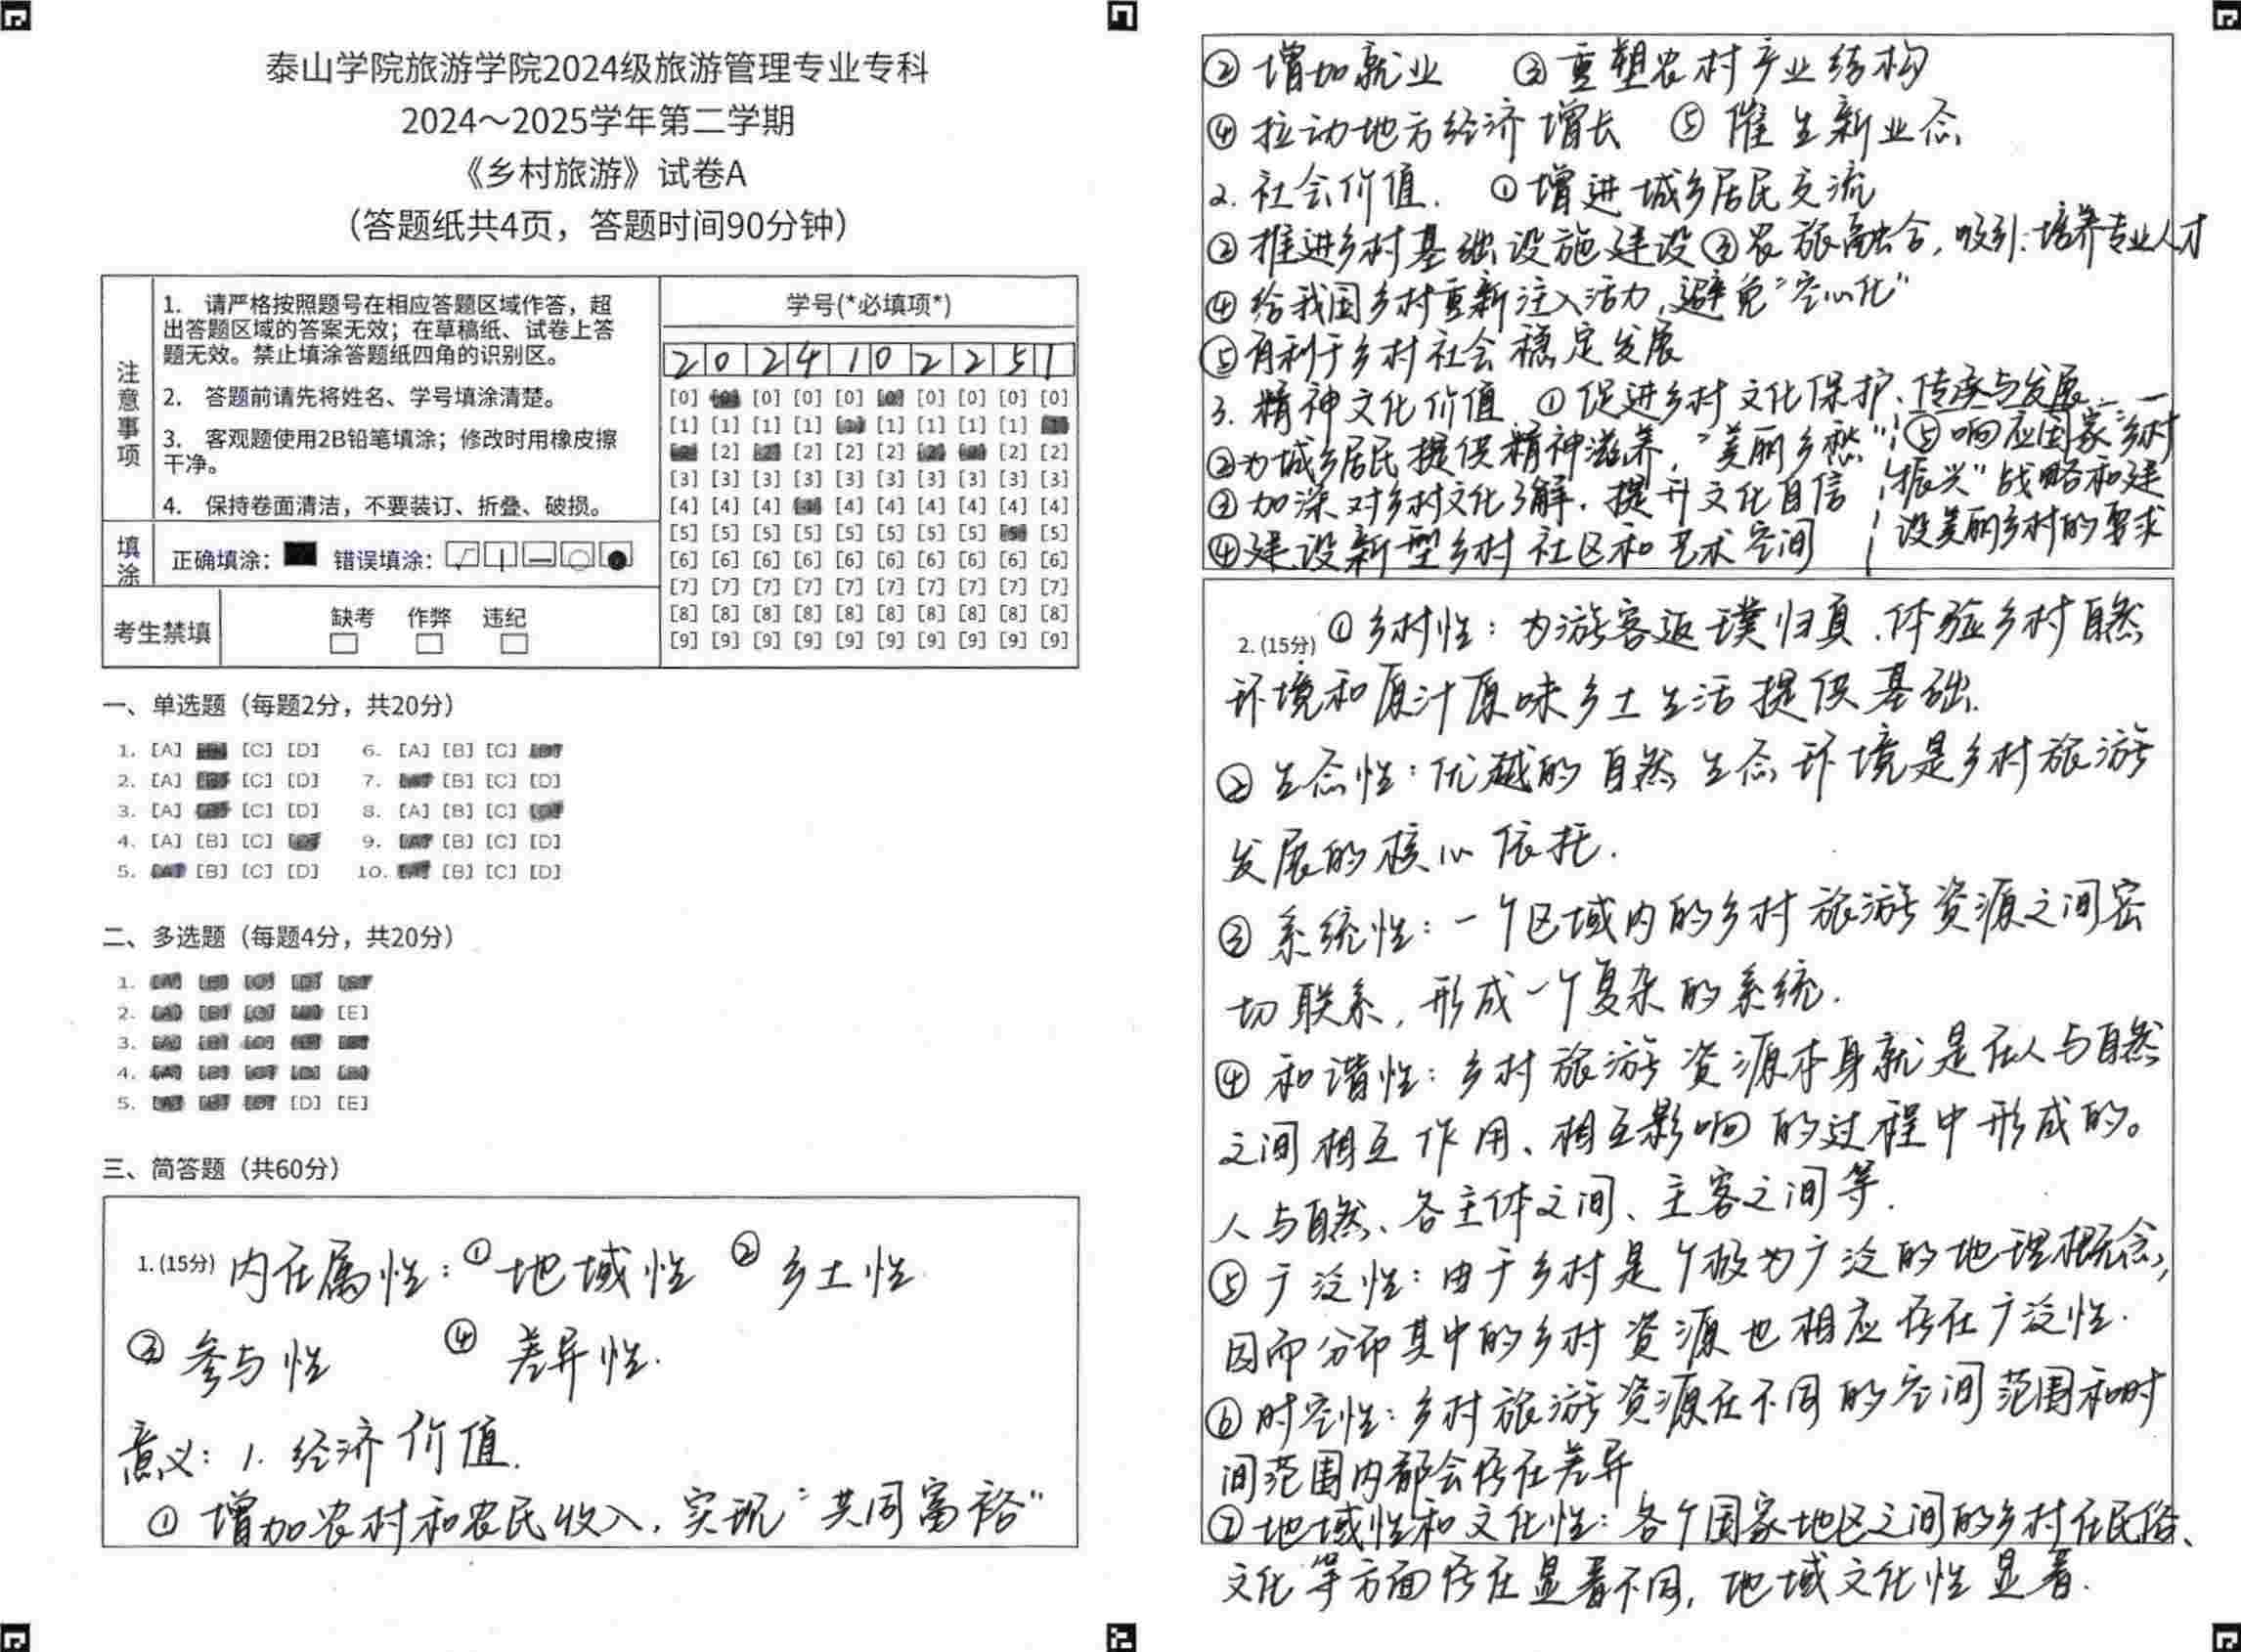 泰山学院旅游学院2024级旅游管理专业专科
2024～2025学年第二学期
《乡村旅游》试卷A
（答题纸共4页，答题时间90分钟）
注意事项
1. 请严格按照题号在相应答题区域作答，超
出答题区域的答案无效；在草稿纸、试卷上答
题无效。禁止填涂答题纸四角的识别区。
2. 答题前请先将姓名、学号填涂清楚。
3. 客观题使用2B铅笔填涂；修改时用橡皮擦
干净。
4. 保持卷面清洁，不要装订、折叠、破损。
填涂
正确填涂： 错误填涂：
考生禁填
缺考 作弊 违纪
学号(*必填项*)
2 0 2 4 1 0 2 2 5 1
[0] [0] [0] [0] [0] [0] [0] [0] [0] [0]
[1] [1] [1] [1] [1] [1] [1] [1] [1] [1]
[2] [2] [2] [2] [2] [2] [2] [2] [2] [2]
[3] [3] [3] [3] [3] [3] [3] [3] [3] [3]
[4] [4] [4] [4] [4] [4] [4] [4] [4] [4]
[5] [5] [5] [5] [5] [5] [5] [5] [5] [5]
[6] [6] [6] [6] [6] [6] [6] [6] [6] [6]
[7] [7] [7] [7] [7] [7] [7] [7] [7] [7]
[8] [8] [8] [8] [8] [8] [8] [8] [8] [8]
[9] [9] [9] [9] [9] [9] [9] [9] [9] [9]
一、单选题（每题2分，共20分）
1. [A] [B] [C] [D] 6. [A] [B] [C] [D]
2. [A] [B] [C] [D] 7. [A] [B] [C] [D]
3. [A] [B] [C] [D] 8. [A] [B] [C] [D]
4. [A] [B] [C] [D] 9. [A] [B] [C] [D]
5. [A] [B] [C] [D] 10. [A] [B] [C] [D]
二、多选题（每题4分，共20分）
1. [A] [B] [C] [D] [E]
2. [A] [B] [C] [D] [E]
3. [A] [B] [C] [D] [E]
4. [A] [B] [C] [D] [E]
5. [A] [B] [C] [D] [E]
三、简答题（共60分）
1. (15分) 内在属性：①地域性 ②乡土性
③参与性 ④差异性.
意义：1. 经济价值.
①增加农村和农民收入，实现“共同富裕”
②增加就业 ③重塑农村产业结构
④拉动地方经济增长 ⑤催生新业态
2. 社会价值. ①增进城乡居民交流
②推进乡村基础设施建设③农旅融合，吸引、培养专业人才
④给我国乡村重新注入活力，避免“空心化”
⑤有利于乡村社会稳定发展
3. 精神文化价值 ①促进乡村文化保护、传承与发展
②为城乡居民提供精神滋养，“美丽乡愁”
③加深对乡村文化了解，提升文化自信
④建设新型乡村社区和艺术空间
⑤响应国家“乡村
振兴”战略和建
设美丽乡村的要求
2. (15分) ①乡村性：为游客返璞归真、体验乡村自然
环境和原汁原味乡土生活提供基础.
②生态性：优越的自然生态环境是乡村旅游
发展的核心依托.
③系统性：一个区域内的乡村旅游资源之间密
切联系，形成一个复杂的系统.
④和谐性：乡村旅游资源本身就是在人与自然
之间相互作用、相互影响的过程中形成的。
人与自然、各主体之间、主客之间等.
⑤广泛性：由于乡村是个极为广泛的地理概念，
因而分布其中的乡村资源也相应存在广泛性.
⑥时空性：乡村旅游资源在不同的空间范围和时
间范围内都会存在差异
⑦地域性和文化性：各个国家地区之间的乡村在民俗、
文化等方面存在显著不同，地域文化性显著.